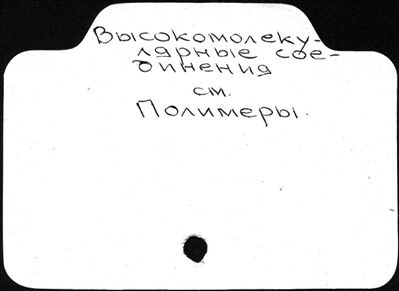 Высокомолеку-
лярные сое-
динения
см.
Полимеры.